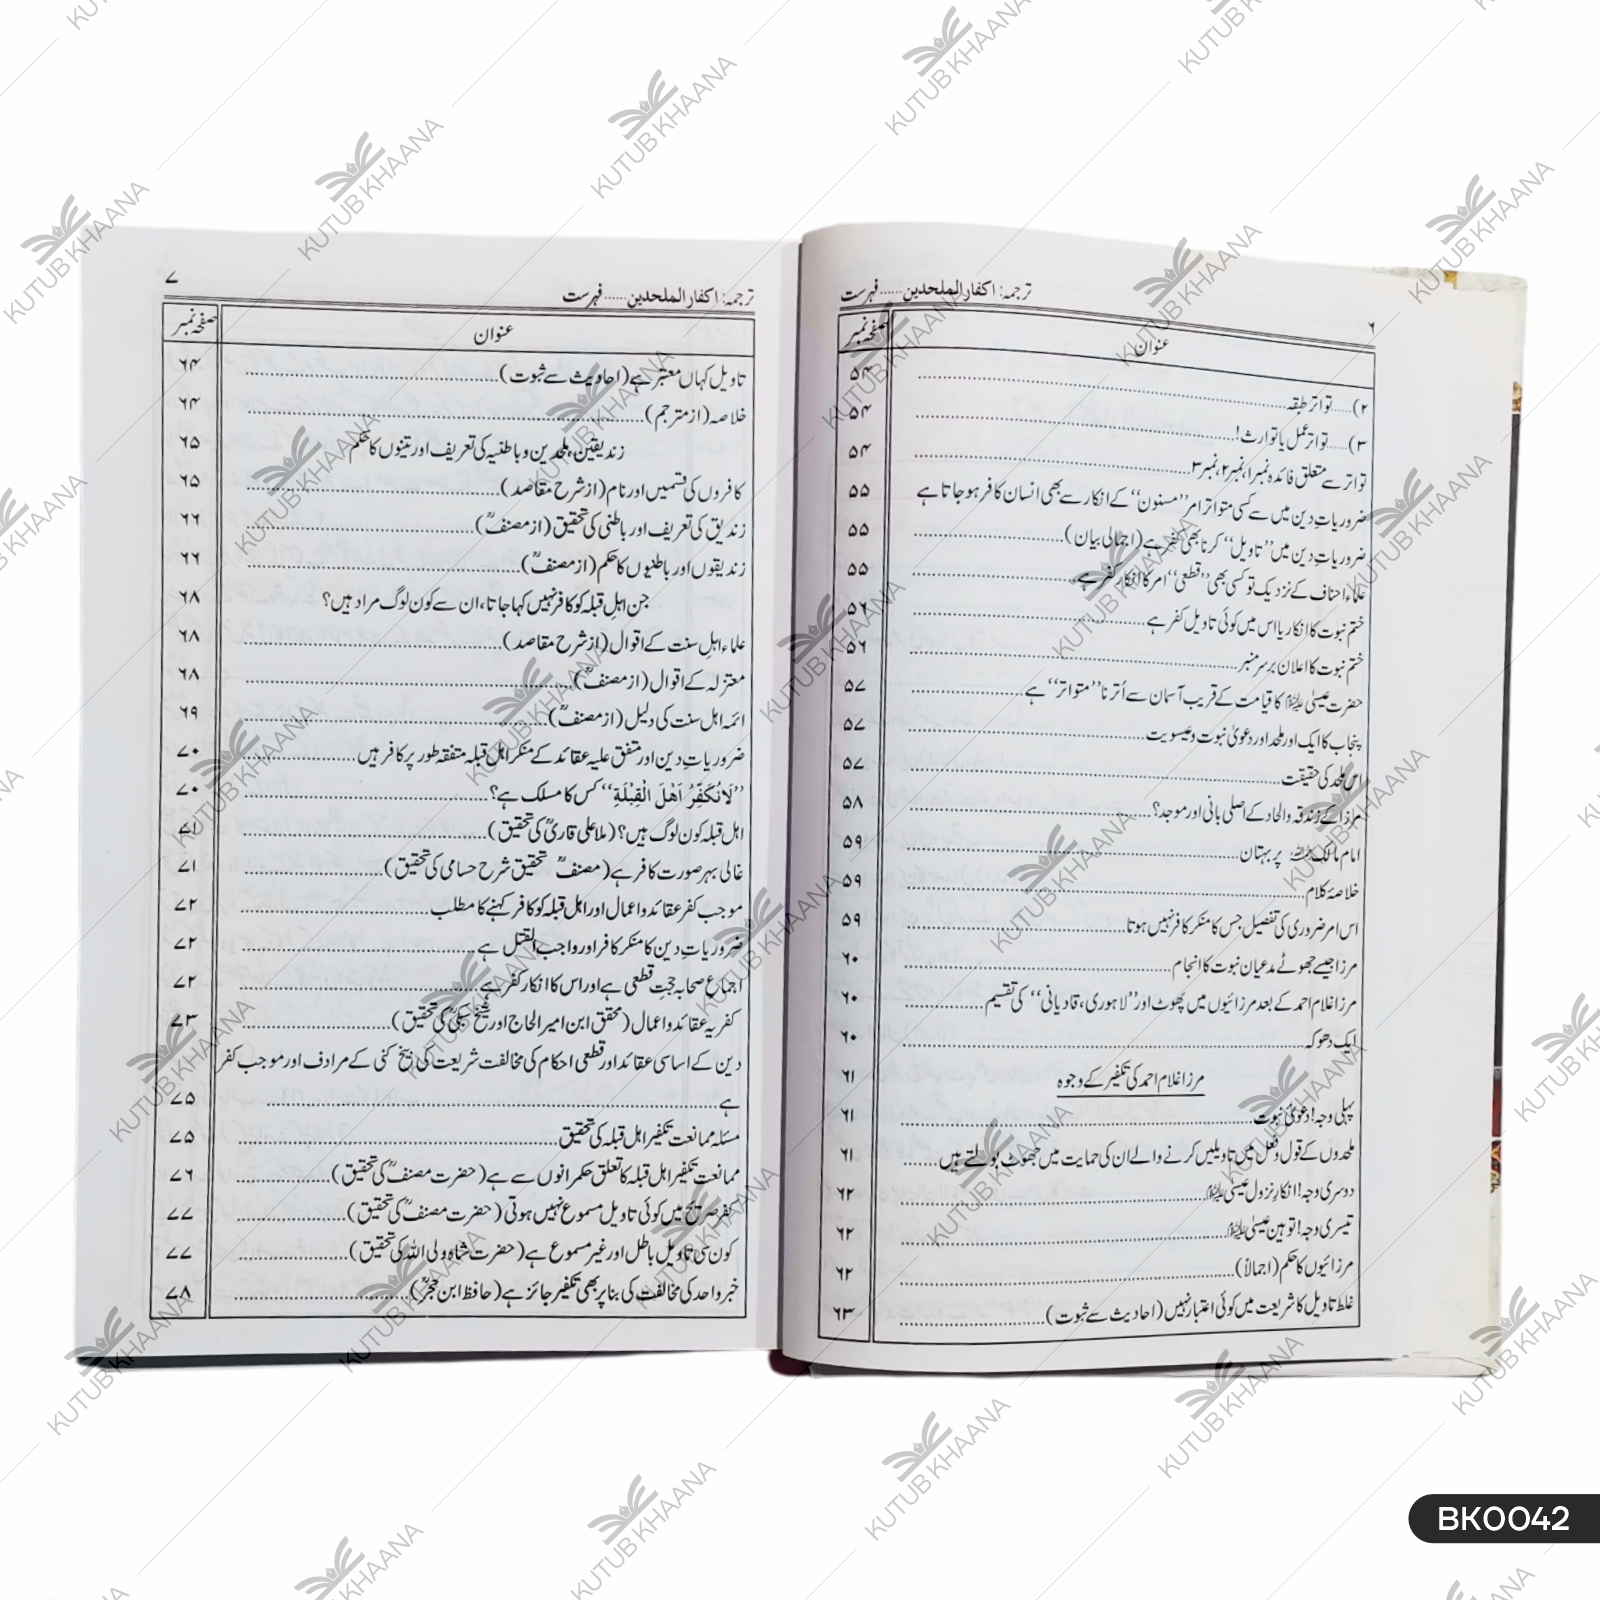 ترجمہ: اکفار الملحدین ...... فہرست
۶
عنوان صفحہ نمبر
۲)..... تواتر طبقہ ۵۴
۳)..... تواتر عمل یا توارث! ۵۴
تواتر سے متعلق فائدہ نمبر۱، نمبر۲، نمبر۳ ۵۴
ضروریاتِ دین میں سے کسی متواتر امر ”مسنون“ کے انکار سے بھی انسان کافر ہو جاتا ہے ۵۵
ضروریاتِ دین میں ”تاویل“ کرنا بھی کفر ہے (اجمالی بیان) ۵۵
علماء احناف کے نزدیک تو کسی بھی ”قطعی“ امر کا انکار کفر ہے ۵۵
ختم نبوت کا انکار یا اس میں کوئی تاویل کفر ہے ۵۶
ختم نبوت کا اعلان برسرِ منبر ۵۶
حضرت عیسیٰ علیہ السلام کا قیامت کے قریب آسمان سے اُترنا ”متواتر“ ہے ۵۷
پنجاب کا ایک اور ملحد اور دعویٰ نبوت و عیسویت ۵۷
اس ملحد کی حقیقت ۵۷
مرزا کے زندقہ والحاد کے اصلی بانی اور موجد؟ ۵۸
امام مالک رحمہ اللہ پر بہتان ۵۹
خلاصۂ کلام ۵۹
اس امر ضروری کی تفصیل جس کا منکر کافر نہیں ہوتا ۵۹
مرزا جیسے جھوٹے مدعیان نبوت کا انجام ۶۰
مرزا غلام احمد کے بعد مرزائیوں میں پھوٹ اور ”لاہوری، قادیانی“ کی تقسیم ۶۰
ایک دھوکہ ۶۰
مرزا غلام احمد کی تکفیر کے وجوہ ۶۱
پہلی وجہ! دعویٰ نبوت ۶۱
ملحدوں کے قول و فعل میں تاویلیں کرنے والے ان کی حمایت میں جھوٹ بولتے ہیں ۶۱
دوسری وجہ! انکارِ نزول عیسیٰ علیہ السلام ۶۲
تیسری وجہ! توہین عیسیٰ علیہ السلام ۶۲
مرزائیوں کا حکم (اجمالاً) ۶۲
غلط تاویل کا شریعت میں کوئی اعتبار نہیں (احادیث سے ثبوت) ۶۳
ترجمہ: اکفار الملحدین ...... فہرست
۷
عنوان صفحہ نمبر
تاویل کہاں معتبر ہے (احادیث سے ثبوت) ۶۴
خلاصہ (از مترجم) ۶۴
زندیقین، ملحدین و باطنیہ کی تعریف اور تینوں کا حکم ۶۵
کافروں کی قسمیں اور نام (از شرح مقاصد) ۶۵
زندیق کی تعریف اور باطنی کی تحقیق (از مصنفؒ) ۶۶
زندیقوں اور باطنیوں کا حکم (از مصنفؒ) ۶۶
جن اہلِ قبلہ کو کافر نہیں کہا جاتا، ان سے کون لوگ مراد ہیں؟ ۶۸
علماء اہلِ سنت کے اقوال (از شرح مقاصد) ۶۸
معتزلہ کے اقوال (از مصنفؒ) ۶۸
ائمہ اہل سنت کی دلیل (از مصنفؒ) ۶۹
ضروریاتِ دین اور متفق علیہ عقائد کے منکر اہل قبلہ متفقہ طور پر کافر ہیں ۷۰
”لَا نُكَفِّرُ اَهْلَ الْقِبْلَةِ“ کس کا مسلک ہے؟ ۷۰
اہل قبلہ کون لوگ ہیں؟ (ملا علی قاریؒ کی تحقیق) ۷۱
غالی بہر صورت کافر ہے (مصنفؒ تحقیق شرح حسامی کی تحقیق) ۷۱
موجب کفر عقائد و اعمال اور اہل قبلہ کو کافر کہنے کا مطلب ۷۲
ضروریاتِ دین کا منکر کافر اور واجب القتل ہے ۷۲
اجماعِ صحابہ حجتِ قطعی ہے اور اس کا انکار کفر ہے ۷۲
کفریہ عقائد و اعمال (محقق ابن امیر الحاج اور شیخ سبکیؒ کی تحقیق) ۷۳
دین کے اساسی عقائد اور قطعی احکام کی مخالفت شریعت کی بیخ کنی کے مرادف اور موجب کفر
ہے ۷۵
مسئلہ ممانعت تکفیر اہل قبلہ کی تحقیق ۷۵
ممانعت تکفیر اہل قبلہ کا تعلق حکمرانوں سے ہے (حضرت مصنفؒ کی تحقیق) ۷۶
کفر صریح میں کوئی تاویل مسموع نہیں ہوتی (حضرت مصنفؒ کی تحقیق) ۷۷
کون سی تاویل باطل اور غیر مسموع ہے (حضرت شاہ ولی اللہؒ کی تحقیق) ۷۷
خبر واحد کی مخالفت کی بنا پر بھی تکفیر جائز ہے (حافظ ابن حجرؒ) ۷۸
KUTUB KHAANA
BK0042